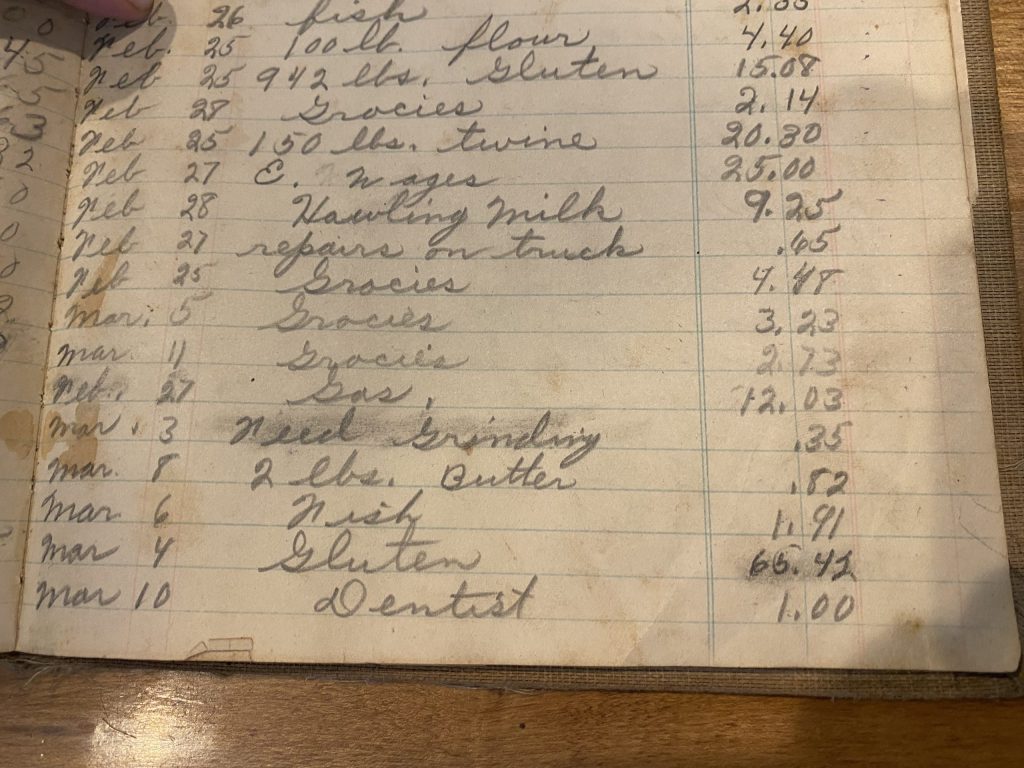 Feb 26 fish
Feb. 25 100 lb. flour 4.40
Feb 25 942 lbs. Gluten 15.08
Feb 28 Grocies 2.14
Feb 25 150 lbs. twine 20.30
Feb 27 E. Wages 25.00
Feb 28 Hawling Milk 9.25
Feb 27 repairs on truck .65
Feb 25 Grocies
Mar. 5 Grocies 3.23
Mar. 11 Grocies 2.73
Feb. 27 Gas. 12.03
Mar. 3 Feed Grinding .35
Mar. 8 2 lbs. Butter .82
Mar 6 Fish 1.91
Mar 4 Gluten 65.42
Mar 10 Dentist 1.00